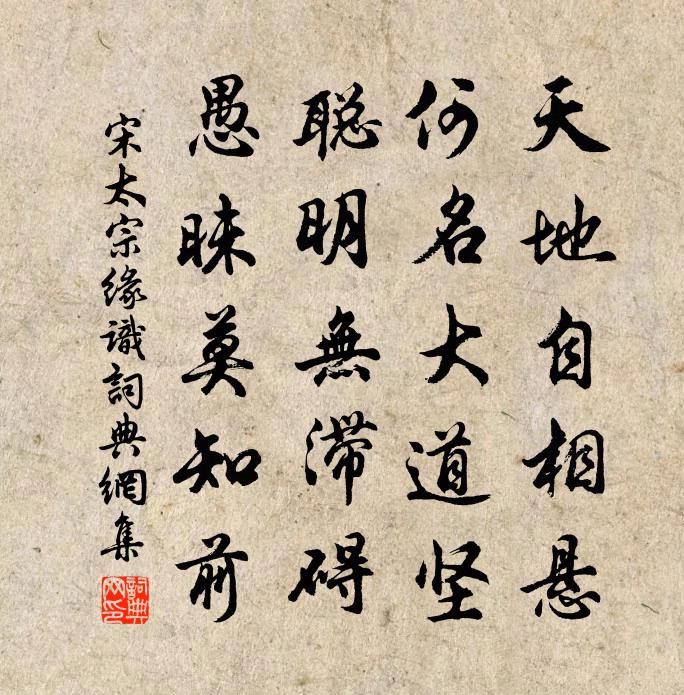 天地自相悬
何名大道坚
聪明無滞碍
愚昧莫知前
宋太宗缘識詞典網集
詞典網印